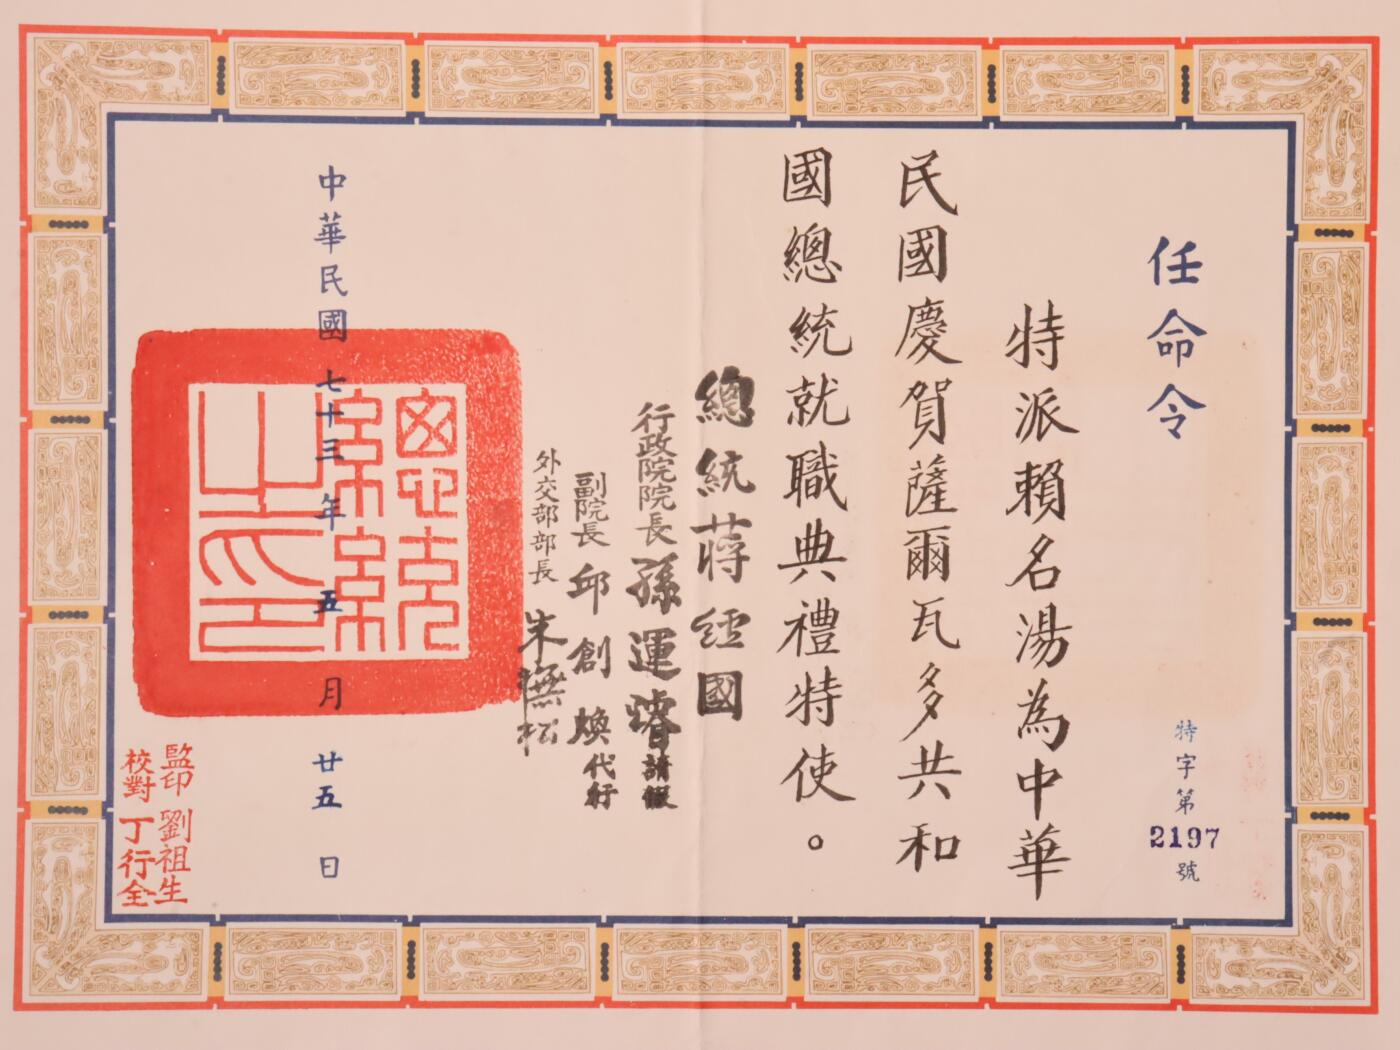 任命令
特字第2197號
特派賴名湯為中華
民國慶賀薩爾瓦多共和
國總統就職典禮特使。
總統蔣經國
行政院院長孫運璿請假
副院長邱創煥代行
外交部部長朱撫松
中華民國七十三年五月廿五日
總統之印
監印劉祖生
校對丁行全